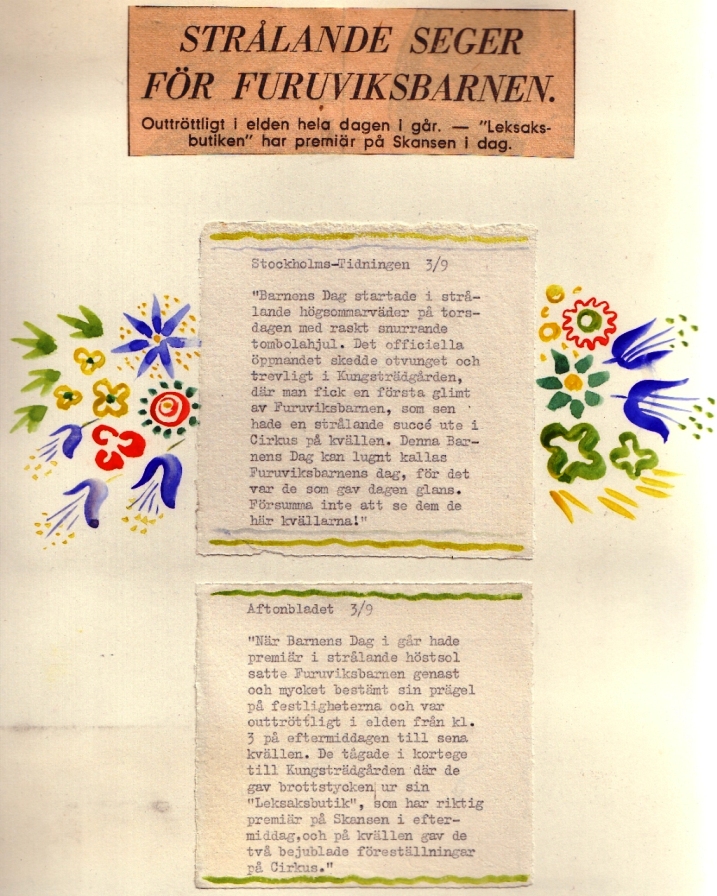 STRÅLANDE SEGER
FÖR FURUVIKSBARNEN.
Outtröttligt i elden hela dagen i går. — "Leksaks-
butiken" har premiär på Skansen i dag.
Stockholms-Tidningen 3/9
"Barnens Dag startade i strå-
lande högsommarväder på tors-
dagen med raskt snurrande
tombolahjul. Det officiella
öppnandet skedde otvunget och
trevligt i Kungsträdgården,
där man fick en första glimt
av Furuviksbarnen, som sen
hade en strålande succé ute i
Cirkus på kvällen. Denna Bar-
nens Dag kan lugnt kallas
Furuviksbarnens dag, för det
var de som gav dagen glans.
Försumma inte att se dem de
här kvällarna!"
Aftonbladet 3/9
"När Barnens Dag i går hade
premiär i strålande höstsol
satte Furuviksbarnen genast
och mycket bestämt sin prägel
på festligheterna och var
outtröttligt i elden från kl.
3 på eftermiddagen till sena
kvällen. De tågade i kortege
till Kungsträdgården där de
gav brottstycken ur sin
"Leksaksbutik", som har riktig
premiär på Skansen i efter-
middag,och på kvällen gav de
två bejublade föreställningar
på Cirkus."